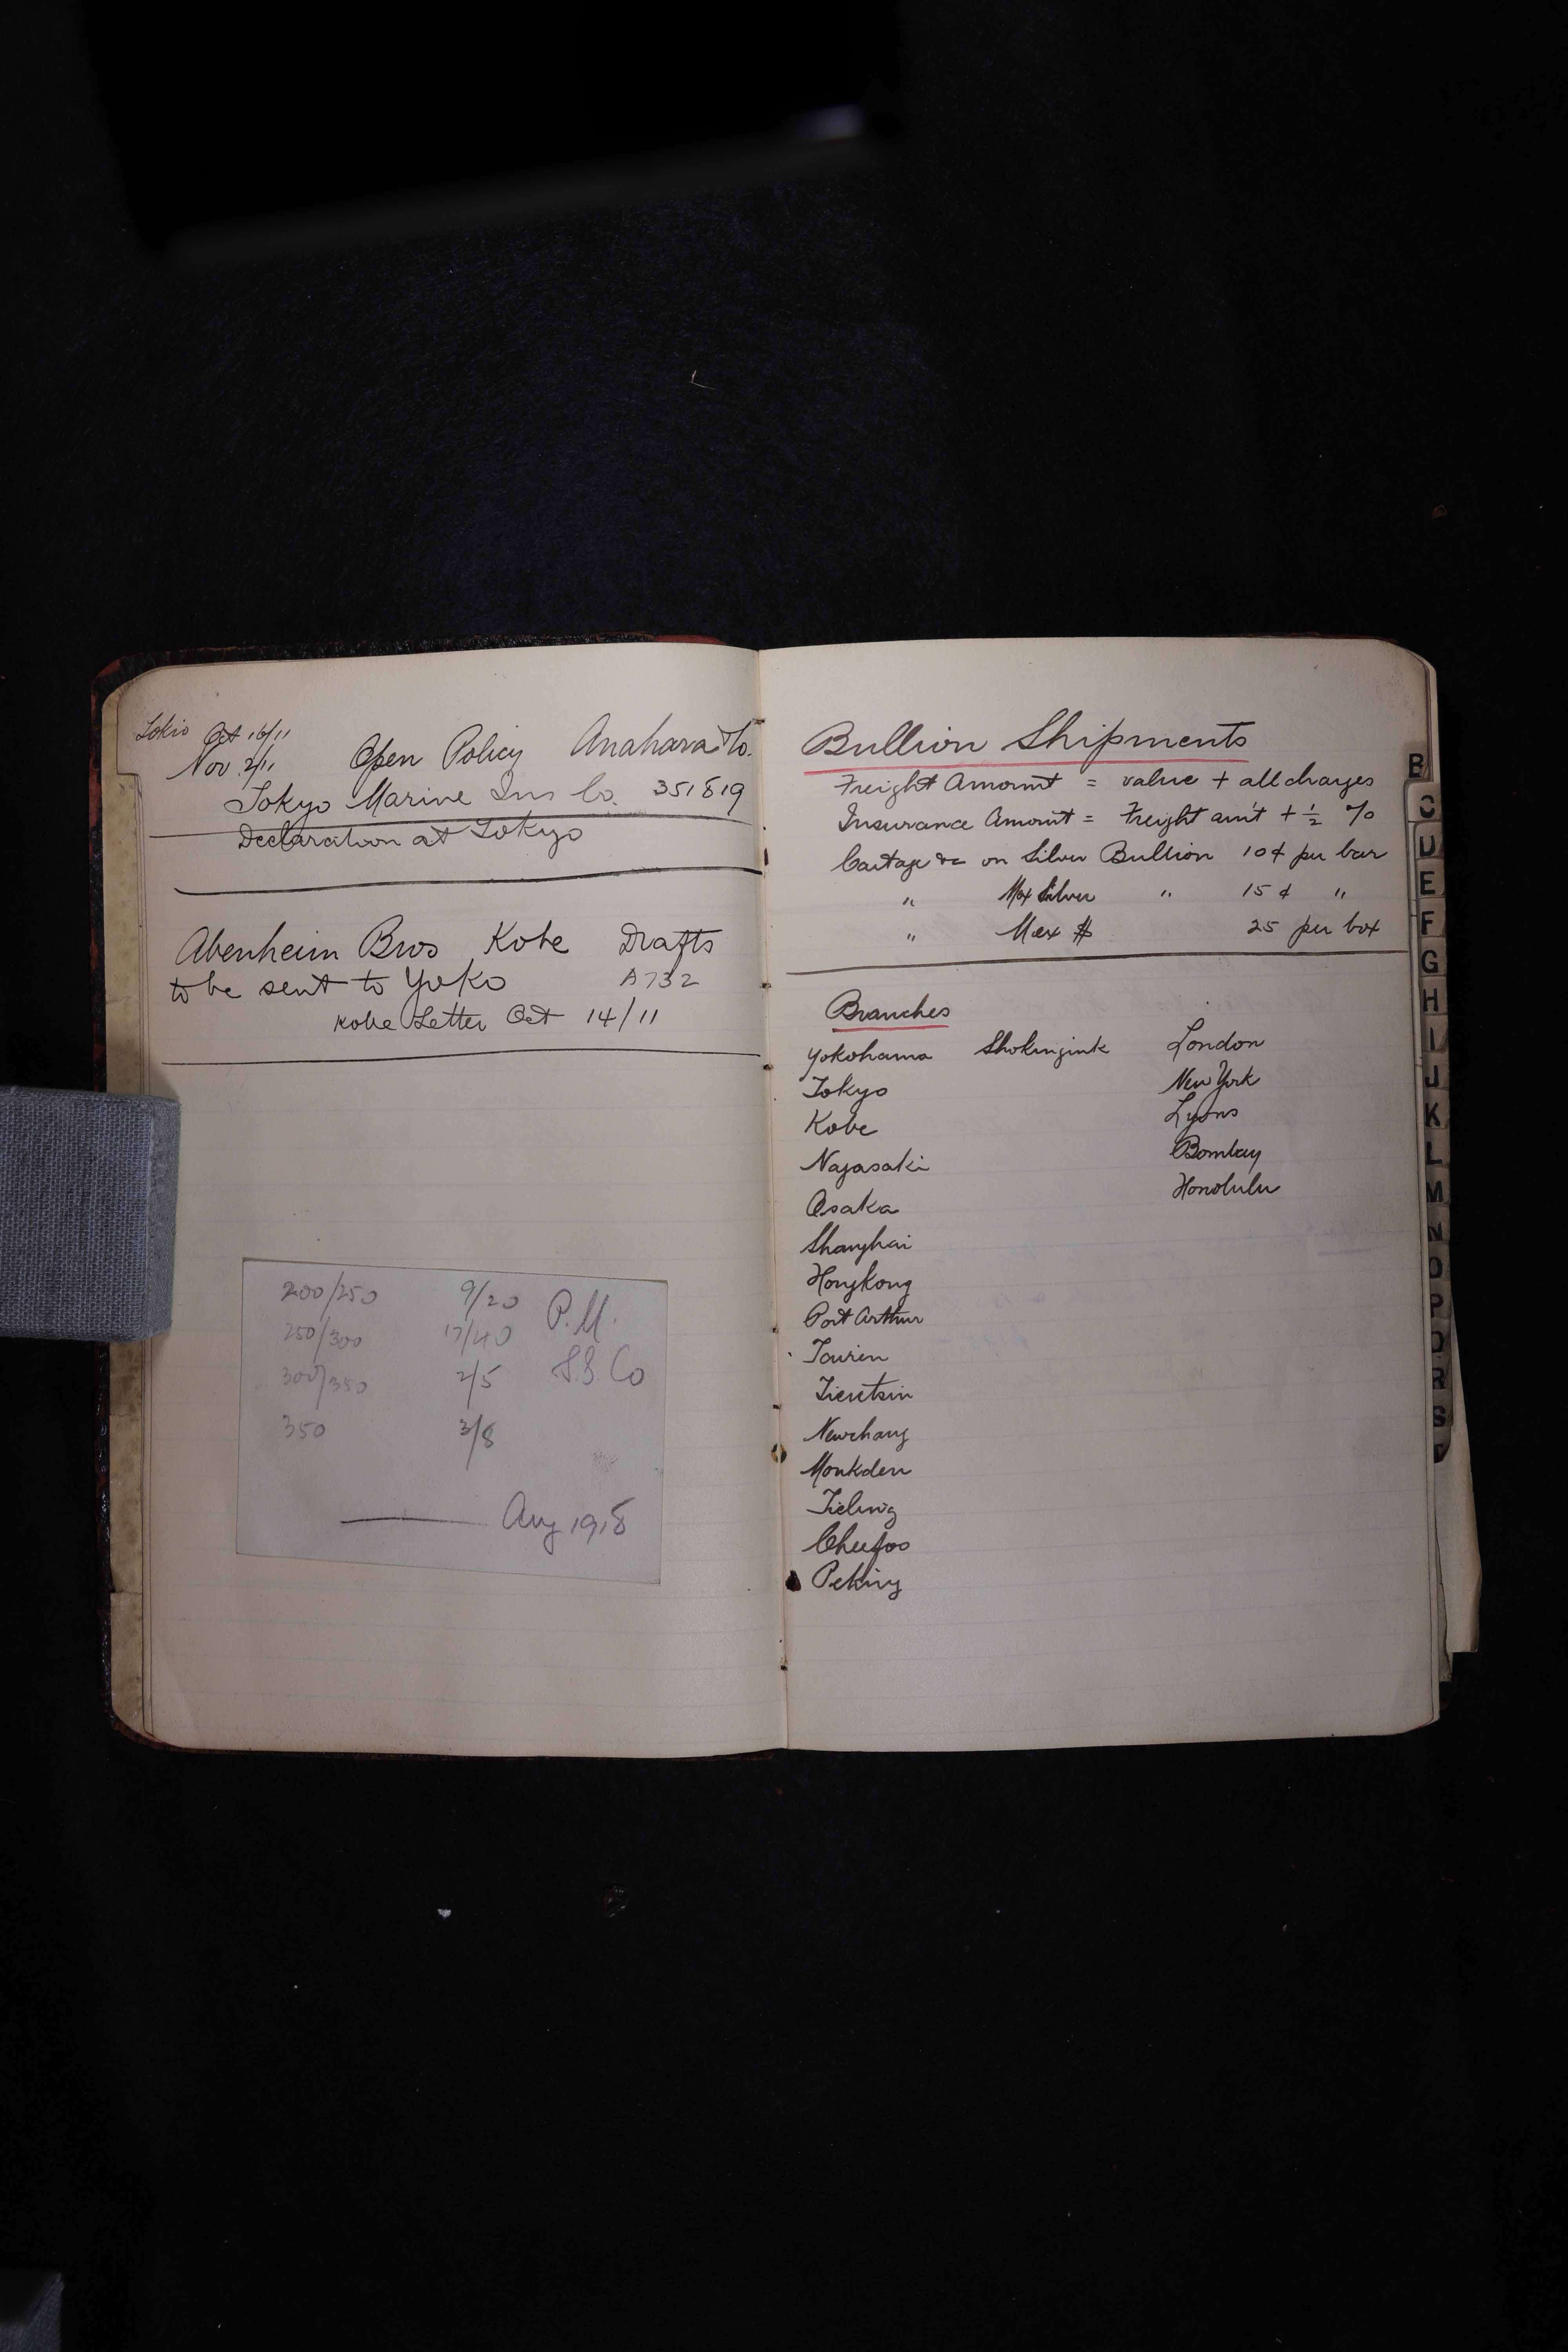 Tokio Oct 16/11
Nov. 2/11 Open Policy Anahara & Co.
Tokyo Marine Ins Co. 351819
Declaration at Tokyo
Abenheim Bros Kobe Drafts
to be sent to Yoko A732
Kobe Letter Oct 14/11
200/250 9/20 P.M.
250/300 17/40
300/350 2/5 S.S. Co
350 3/8
Aug 1918
Bullion Shipments
Freight Amount = value + all charges
Insurance Amount = Freight am't + ½ %
Cartage &c on Silver Bullion 10¢ per bar
" Mex Silver " 15¢ "
" Mex $ 25 per box
Branches
Yokohama Shokingink London
Tokyo New York
Kobe Lyons
Nagasaki Bombay
Osaka Honolulu
Shanghai
Hongkong
Port Arthur
Tairen
Tientsin
Newchang
Moukden
Tieling
Cheefoo
Peking
B
C
D
E
F
G
H
I
J
K
L
M
N
O
P
Q
R
S